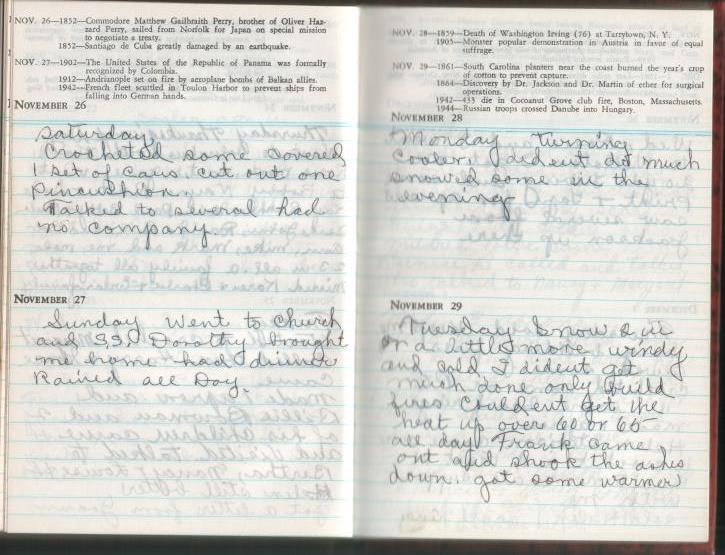 NOV. 26—1852—Commodore Matthew Gailbraith Perry, brother of Oliver Haz-
zard Perry, sailed from Norfolk for Japan on special mission
to negotiate a treaty.
1852—Santiago de Cuba greatly damaged by an earthquake.
NOV. 27—1902—The United States of the Republic of Panama was formally
recognized by Colombia.
1912—Andrianople set on fire by aeroplane bombs of Balkan allies.
1942—French fleet scuttled in Toulon Harbor to prevent ships from
falling into German hands.
NOVEMBER 26
Saturday
Crocheted some covered
1 set of cans. cut out one
pincushion.
Talked to several had
no company.
NOVEMBER 27
Sunday Went to Church
and S.S. Dorothy brought
me home had dinner
Rained all Day.
NOV. 28—1859—Death of Washington Irving (76) at Tarrytown, N. Y.
1905—Monster popular demonstration in Austria in favor of equal
suffrage.
NOV. 29—1861—South Carolina planters near the coast burned the year's crop
of cotton to prevent capture.
1864—Discovery by Dr. Jackson and Dr. Martin of ether for surgical
operations.
1942—433 die in Cocoanut Grove club fire, Boston, Massachusetts.
1944—Russian troops crossed Danube into Hungary.
NOVEMBER 28
Monday turning
cooler, dident do much
snowed some in the
evening
NOVEMBER 29
Tuesday Snow 2 in
or a little more windy
and cold I dident get
much done only build
fires couldent get the
heat up over 60 or 65
all day Frank came
out and shook the ashes
down. got some warmer